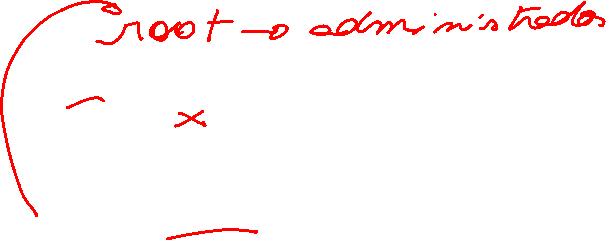 root → administrador
x